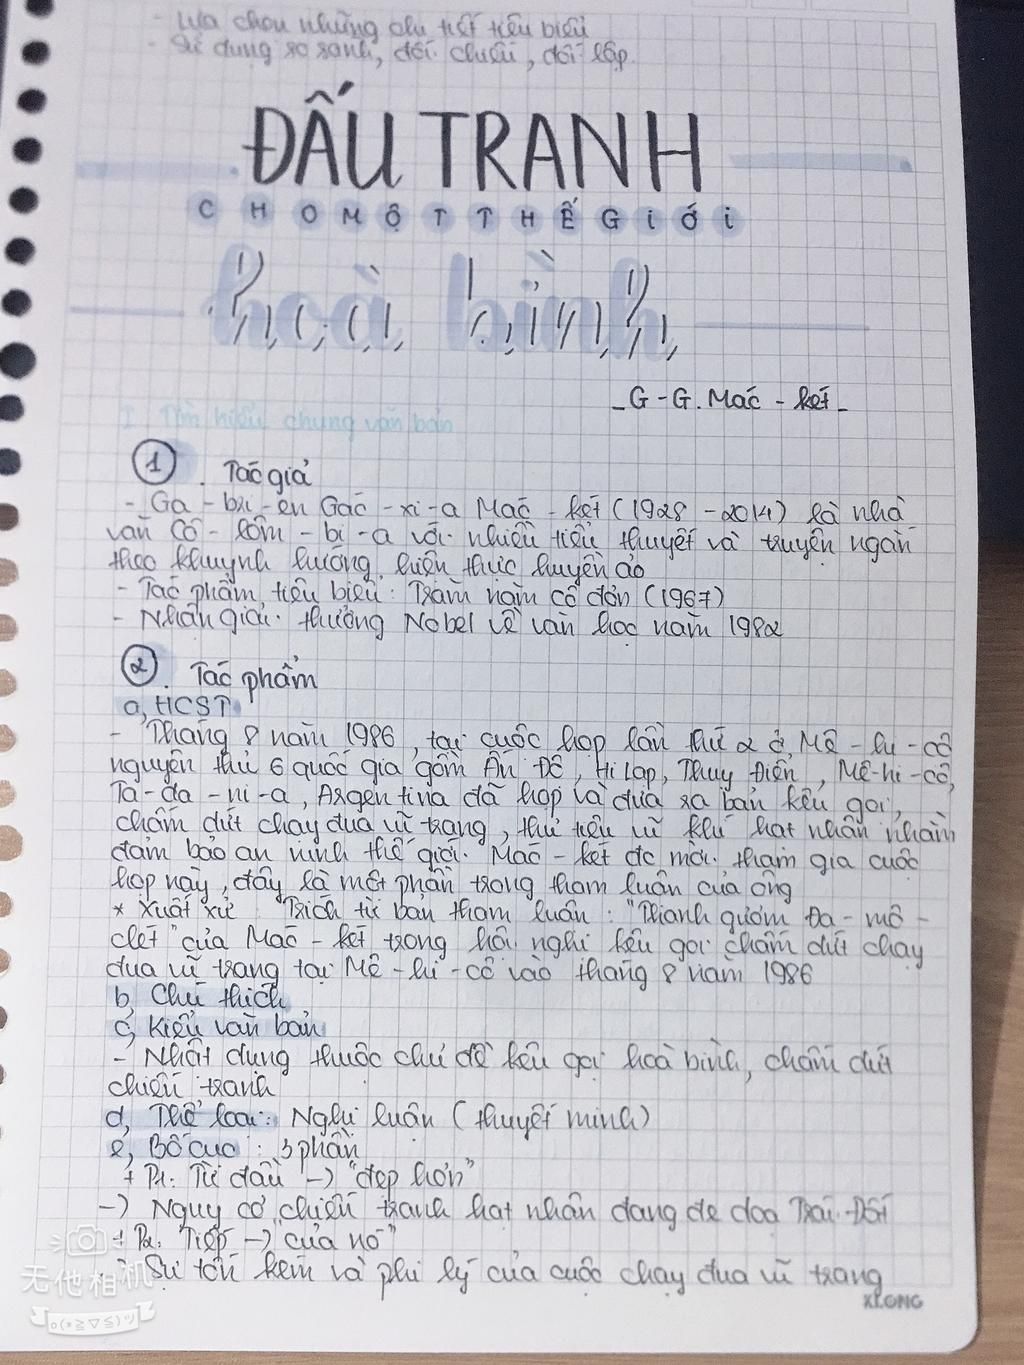 - Lựa chọn những chi tiết tiêu biểu
- Sử dụng so sánh, đối chiếu, đối lập.
ĐẤU TRANH
CHO MỘT THẾ GIỚI
hoà bình
_G-G. Mác - két_
I. Tìm hiểu chung văn bản
1. Tác giả
- Ga - bri - en Gác - xi - a Mác - két (1928 - 2014) là nhà
văn Cô - lôm - bi - a với nhiều tiểu thuyết và truyện ngắn
theo khuynh hướng hiện thực huyền ảo
- Tác phẩm tiêu biểu: Trăm năm cô đơn (1967)
- Nhận giải thưởng Nobel về văn học năm 1982
2. Tác phẩm
a, HCST
- Tháng 8 năm 1986, tại cuộc họp lần thứ 2 ở Mê - hi - cô
nguyên thủ 6 quốc gia gồm Ấn Độ, Hi Lạp, Thụy Điển, Mê-hi-cô,
Ta-da-ni-a, Argentina đã họp và đưa ra bản kêu gọi,
chấm dứt chạy đua vũ trang, thủ tiêu vũ khí hạt nhân nhằm
đảm bảo an ninh thế giới. Mác - két đc mời tham gia cuộc
họp này, đây là một phần trong tham luận của ông
* Xuất xứ: Trích từ bản tham luận: "Thanh gươm Đa - mô -
clét" của Mác - két trong hội nghị kêu gọi chấm dứt chạy
đua vũ trang tại Mê - hi - cô vào tháng 8 năm 1986
b, Chú thích
c, Kiểu văn bản
- Nhật dụng thuộc chủ đề kêu gọi hoà bình, chấm dứt
chiến tranh
d, Thể loại: Nghị luận (thuyết minh)
e, Bố cục: 3 phần
+ P1: Từ đầu -> "đẹp hơn"
-> Nguy cơ chiến tranh hạt nhân đang đe doạ Trái Đất
+ P2: Tiếp -> "của nó"
Sự tốn kém và phi lý của cuộc chạy đua vũ trang
无他相机
o(*≧▽≦)ツ
KLONG